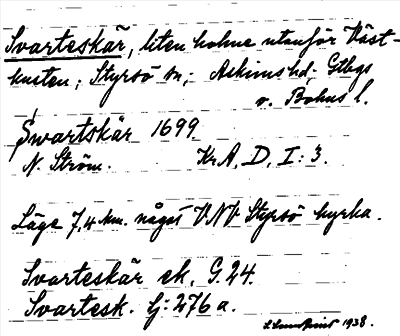 Svarteskär, liten holme utanför Väst-
kusten; Styrsö sn; Askims hd; Gtbgs
o. Bohus l.
Swartskär 1699.
N. Ström. KrA, D, I: 3.
Läge 7,4 km. något VNV Styrsö kyrka.
Svarteskär ek. G. 24.
Svartesk. Lj: 276 a.
1938.